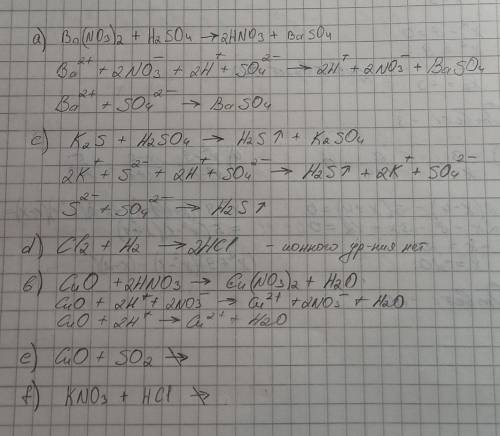 a) Ba(NO3)2 + H2SO4 → 2HNO3 + BaSO4
Ba²⁺ + 2NO3⁻ + 2H⁺ + SO4²⁻ → 2H⁺ + 2NO3⁻ + BaSO4
Ba²⁺ + SO4²⁻ → BaSO4
c) K2S + H2SO4 → H2S↑ + K2SO4
2K⁺ + S²⁻ + 2H⁺ + SO4²⁻ → H2S↑ + 2K⁺ + SO4²⁻
S²⁻ + SO4²⁻ → H2S↑
d) Cl2 + H2 → 2HCl - ионного ур-ния нет
в) CuO + 2HNO3 → Cu(NO3)2 + H2O
CuO + 2H⁺ + 2NO3⁻ → Cu²⁺ + 2NO3⁻ + H2O
CuO + 2H⁺ → Cu²⁺ + H2O
e) CuO + SO2 ↛
f) KNO3 + HCl ↛